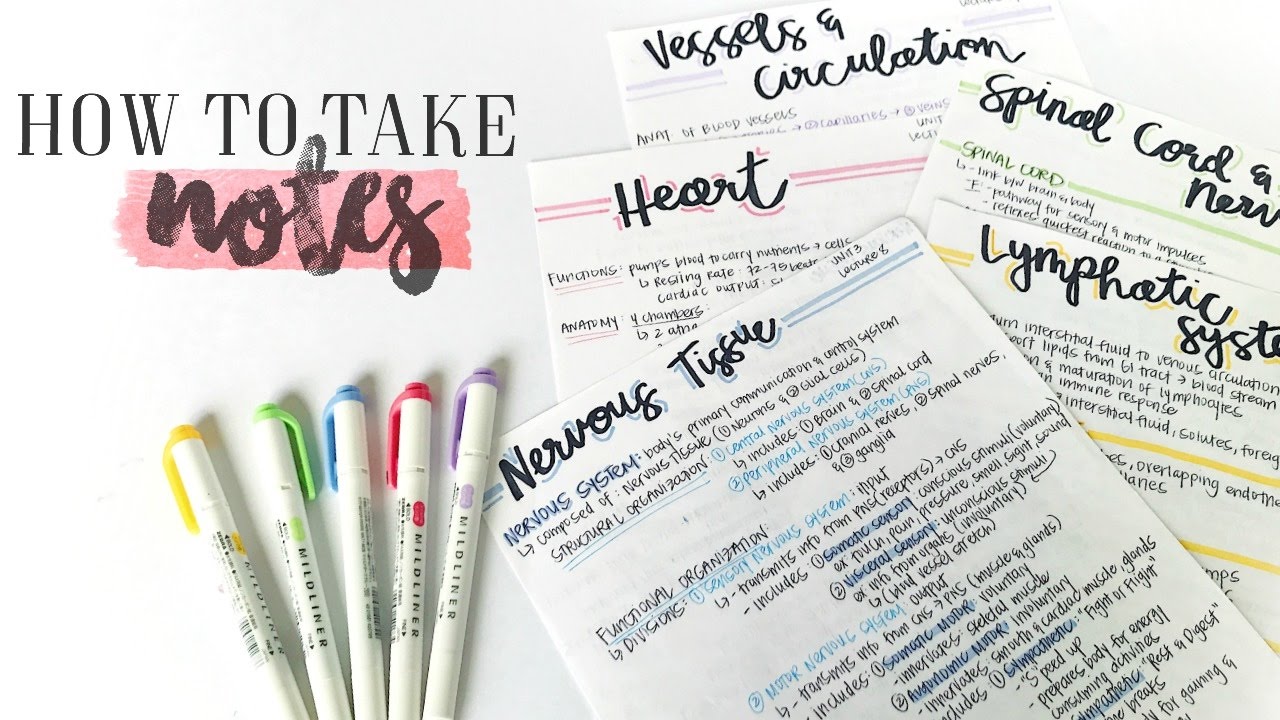 HOW TO TAKE
notes
Vessels &
circulation
ANAT. OF BLOOD VESSELS
→ ② capillaries → ③ veins
UNIT
Heart
FUNCTIONS: pumps blood to carry nutrients → cells
↳ Resting rate: 72-75 beats
cardiac output:
ANATOMY: 4 chambers:
↳ 2 atria
Spinal Cord &
SPINAL CORD
↳ - link b/w brain & body
- pathway for sensory & motor impulses
- reflexes: quickest reaction to a
Lymphatic
system
interstitial fluid to venous circulation
lipids from GI tract → blood stream
& maturation of lymphocytes
immune response
interstitial fluid, solutes,
overlapping
Nervous Tissue
UNIT 3
Lecture 8
NERVOUS SYSTEM: body's primary communication & control system
↳ composed of: Nervous tissue (① Neurons & ② Glial cells)
STRUCTURAL ORGANIZATION: ① central nervous system (CNS)
↳ includes: ① Brain & ② spinal cord
② peripheral nervous system (PNS)
↳ includes: ① cranial nerves, ② spinal nerves,
& ③ ganglia
FUNCTIONAL ORGANIZATION
↳ Divisions: ① sensory nervous system: input
- transmits info from PNS (receptors) → CNS
- includes: ① somatic sensory: conscious stimuli (voluntary)
ex touch, pain, pressure, smell, sight, sound
② visceral sensory: unconscious stimuli
↳ info from organs (involuntary)
↳ (blood vessel stretch)
② MOTOR NERVOUS SYSTEM: output
- transmits info from CNS → PNS (muscle & glands)
- includes: ① somatic motor: voluntary
- innervates: skeletal muscle
② Autonomic motor: involuntary
- innervates: smooth & cardiac muscle, glands
- includes: ① sympathetic: "Fight or Flight"
- "speed up"
prepares body for energy
consuming activities
"Rest & Digest"
MILDLINER
MILDLINER
MILDLINER
MILDLINER
MILDLINER